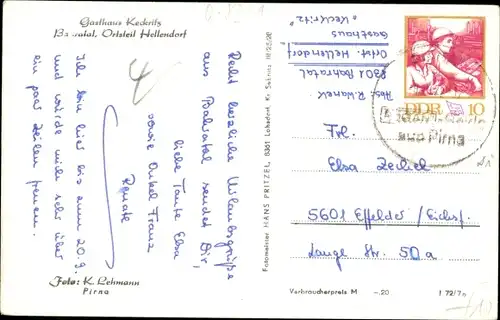 Gasthaus Keckritz
Bahratal, Ortsteil Hellendorf
Recht herzliche Urlaubsgrüße
aus Bahratal sendet Dir,
liebe Tante Elsa
sowie Onkel Franz
Renate
Ich bin hier bis zum 20.9.
und würde mich sehr über
ein paar Zeilen freuen.
Foto: K. Lehmann
Pirna
Fotomeister HANS PRITZEL, 8361 Lohsdorf, Kr. Sebnitz
Abs. R.
8301 Bahratal
Ortst. Hellendorf
Gasthaus
"Keckritz"
DDR 10
aus Pirna
Frl.
Elsa
5601 Effelder / Eichsf.
Lange Str. 50a
Verbraucherpreis M -,20
I 72/7n